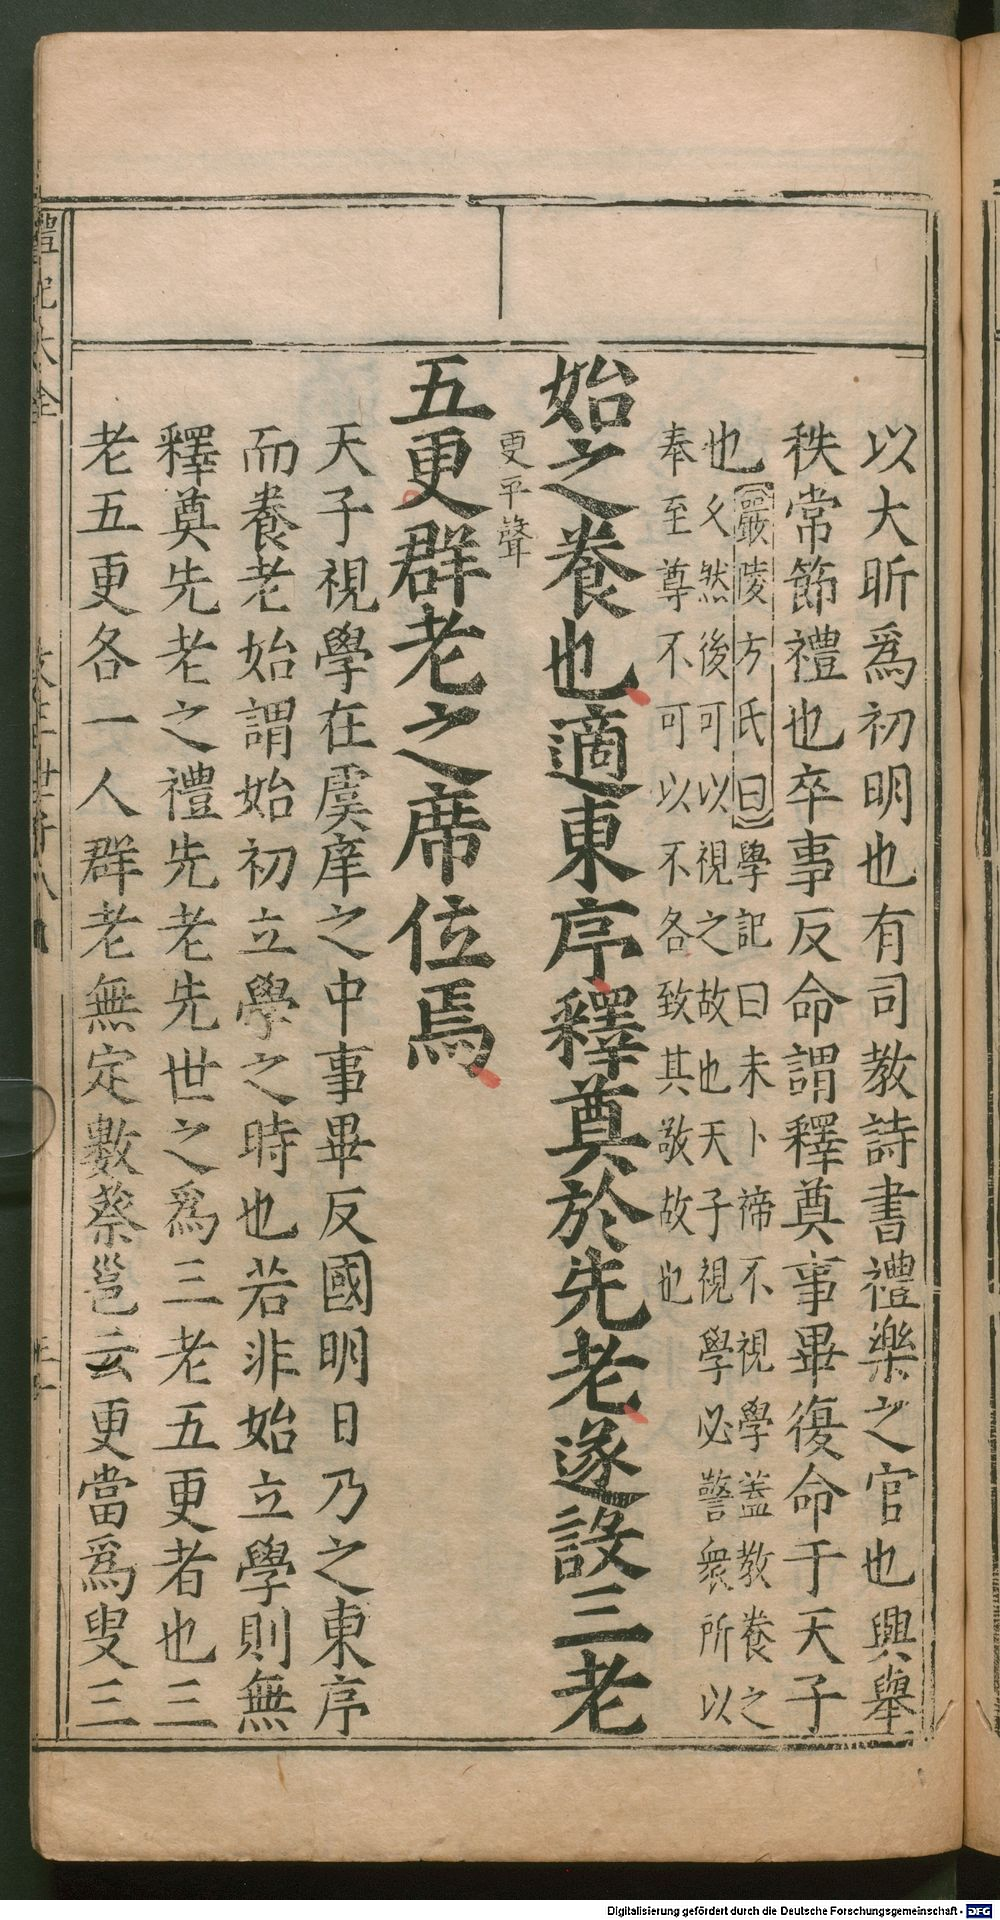 以大昕爲初明也有司教詩書禮樂之官也興舉
秩常節禮也卒事反命謂釋奠事畢復命于天子
也嚴陵方氏曰學記曰未卜禘不視學蓋教養之
乆然後可以視之故也天子視學必警衆所以
奉至尊不可以不各致其敬故也
始之養也適東序釋奠於先老遂設三老
更平聲
五更群老之席位焉
天子視學在虞庠之中事畢反國明日乃之東序
而養老始謂始初立學之時也若非始立學則無
釋奠先老之禮先老先世之爲三老五更者也三
老五更各一人群老無定數蔡邕云更當爲叟三
禮記大全
Digitalisierung gefördert durch die Deutsche Forschungsgemeinschaft - DFG